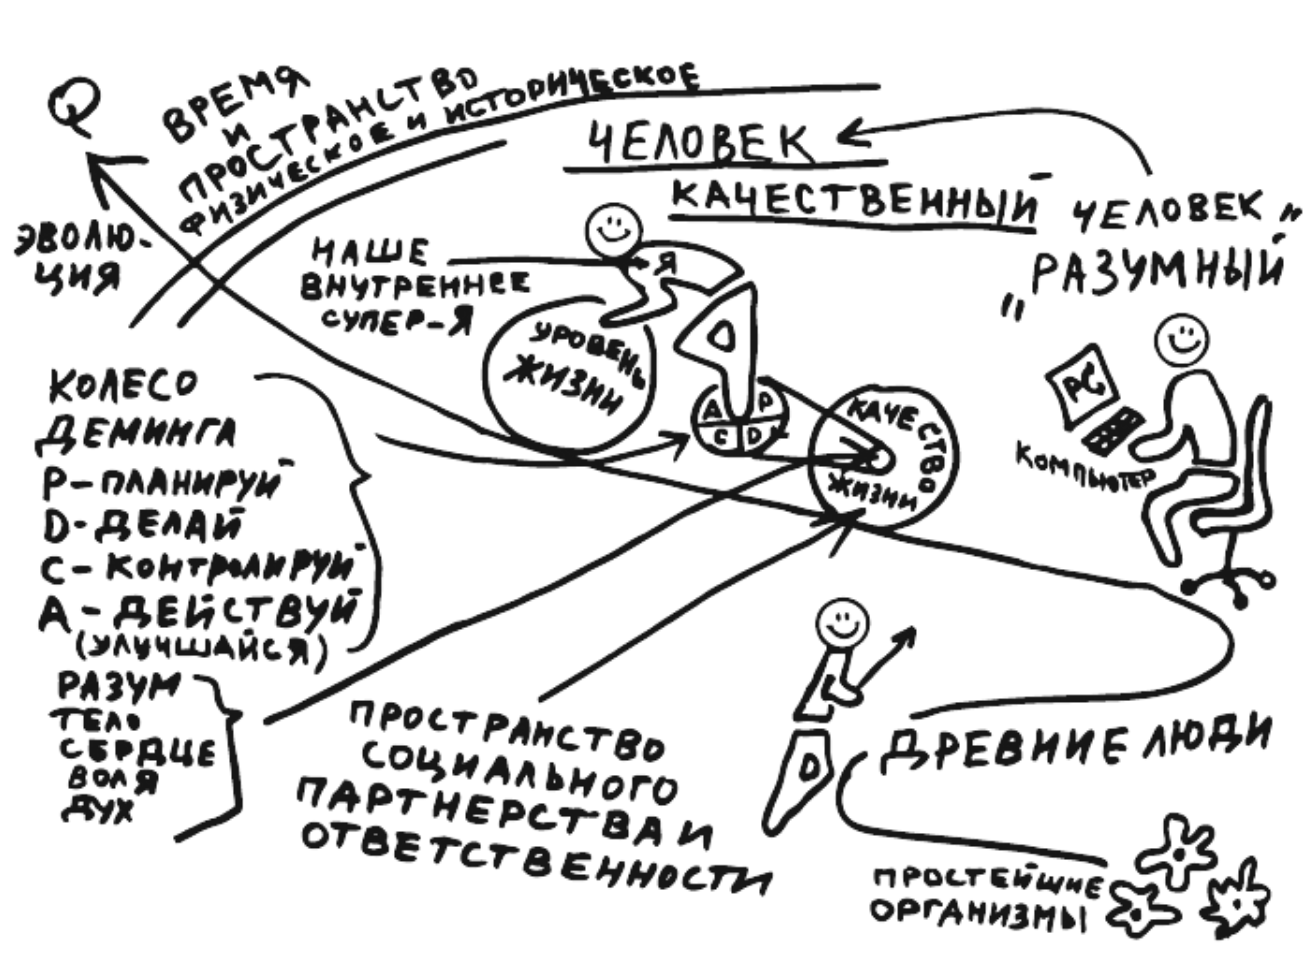 Q
ВРЕМЯ
И
ПРОСТРАНСТВО
ФИЗИЧЕСКОЕ И ИСТОРИЧЕСКОЕ
ЭВОЛЮ-
ЦИЯ
ЧЕЛОВЕК
КАЧЕСТВЕННЫЙ
ЧЕЛОВЕК"
"РАЗУМНЫЙ
НАШЕ
ВНУТРЕННЕЕ
СУПЕР-Я
Я
D
УРОВЕНЬ
ЖИЗНИ
A P
C D
КАЧЕСТВО
ЖИЗНИ
PC
КОМПЬЮТЕР
КОЛЕСО
ДЕМИНГА
P-ПЛАНИРУЙ
D-ДЕЛАЙ
C-КОНТРОЛИРУЙ
A-ДЕЙСТВУЙ
(УЛУЧШАЙСЯ)
РАЗУМ
ТЕЛО
СЕРДЦЕ
ВОЛЯ
ДУХ
ПРОСТРАНСТВО
СОЦИАЛЬНОГО
ПАРТНЕРСТВА И
ОТВЕТСТВЕННОСТИ
D
ДРЕВНИЕ ЛЮДИ
ПРОСТЕЙШИЕ
ОРГАНИЗМЫ